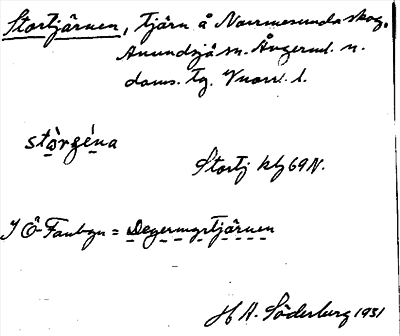 Stortjärnen, tjärn å Norrmesunda skog,
Anundsjö sn. Ångerml. n.
doms. tg. Vnorrl. l.
stòrǥéna
Stortj kbl 69 N.
I Ö-Fanbyn = Degermyrtjärnen
H A. Söderberg 1931